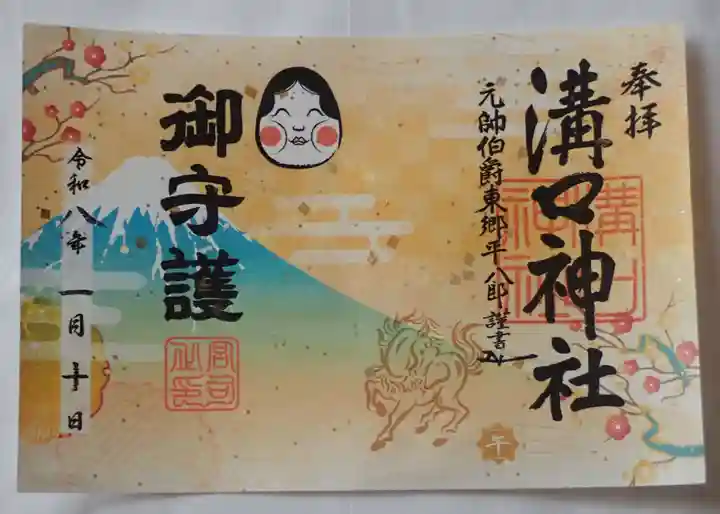 奉拝
溝口神社
元帥伯爵東郷平八郎謹書
午
御守護
令和八年一月十日